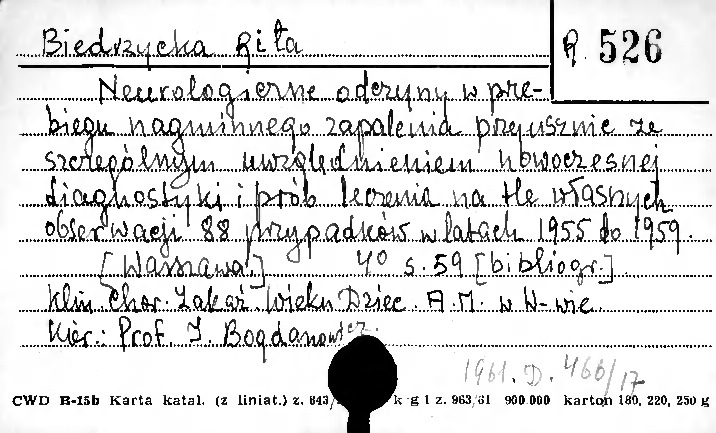 Biedrzycka Rita
R 526
Neurologiczne odczyny w prze-
biegu nagminnego zapalenia przyusznic ze
szczególnym uwzględnieniem nowoczesnej
diagnostyki i prób leczenia na tle własnych
obserwacji 88 przypadków w latach 1955 do 1959.
[Warszawa.] 4° s. 59 [bibliogr.]
Klin. Chor. Zakaź. Wieku Dziec. A.M. w W-wie.
Kier.: Prof. J. Bogdanowicz.
1961. D. 466/17
CWD B-15b Karta katal. (z liniat.) z. 643/ k g 1 z. 963/61 900.000 karton 180, 220, 250 g